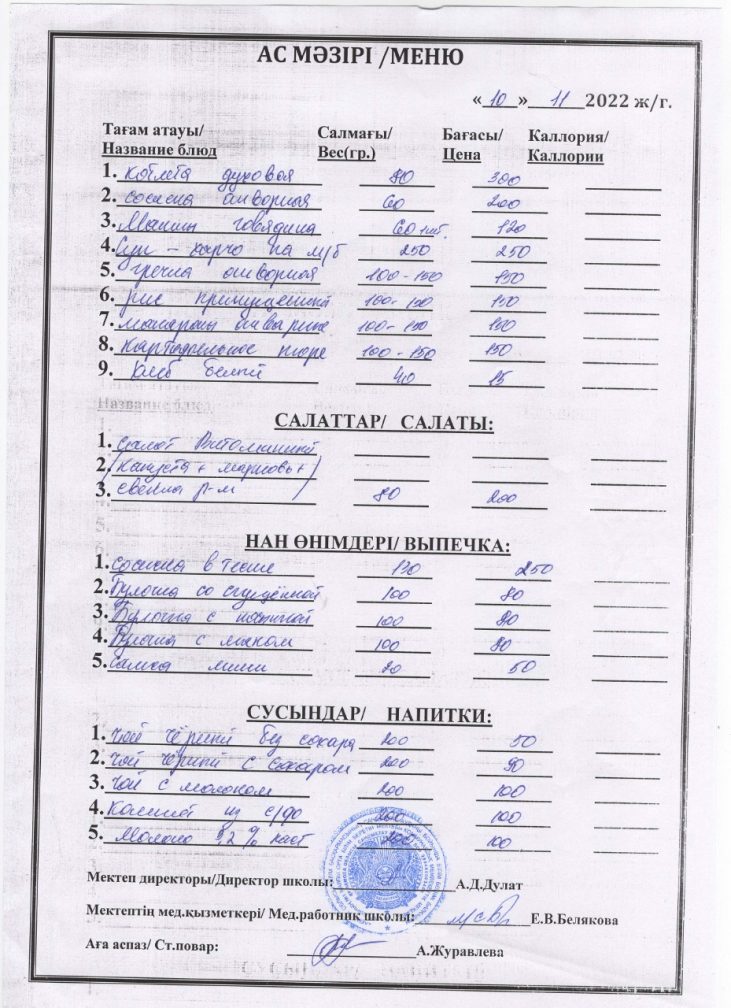 АС МӘЗІРІ /МЕНЮ
« 10 » 11 2022 ж/г.
Тағам атауы/ Салмағы/ Бағасы/ Каллория/
Название блюд Вес(гр.) Цена Каллории
1. Котлета духовая 80 300
2. Сосиска отворная 60 200
3. Манты говядина 60 1шт. 120
4. Суп – харчо на м/б 250 250
5. гречка отворная 100-150 150
6. рис припущенный 100-150 150
7. макароны отварные 100-150 150
8. Картофельное пюре 100-150 150
9. Хлеб белый 40 15
САЛАТТАР/ САЛАТЫ:
1. Салат Витаминный
2. (Капуста + марковь +)
3. свекла р-м 80 200
НАН ӨНІМДЕРІ/ ВЫПЕЧКА:
1. Сосиска в тесте 130 250
2. Булочка со сгущённой 100 80
3. Булочка с 100 80
4. Булочка с маком 100 80
5. Самса мини 50
СУСЫНДАР/ НАПИТКИ:
1. Чай чёрный без сахара 200 50
2. Чай чёрный с сахаром 200
3. Чай с молоком 200 100
4. Компот из с/ф 200 100
5. Молоко 3,2 % паст 200 100
Мектеп директоры/Директор школы: А.Д.Дулат
Мектептің мед.қызметкері/ Мед.работник школы: Е.В.Белякова
Аға аспаз/ Ст.повар: А.Журавлева